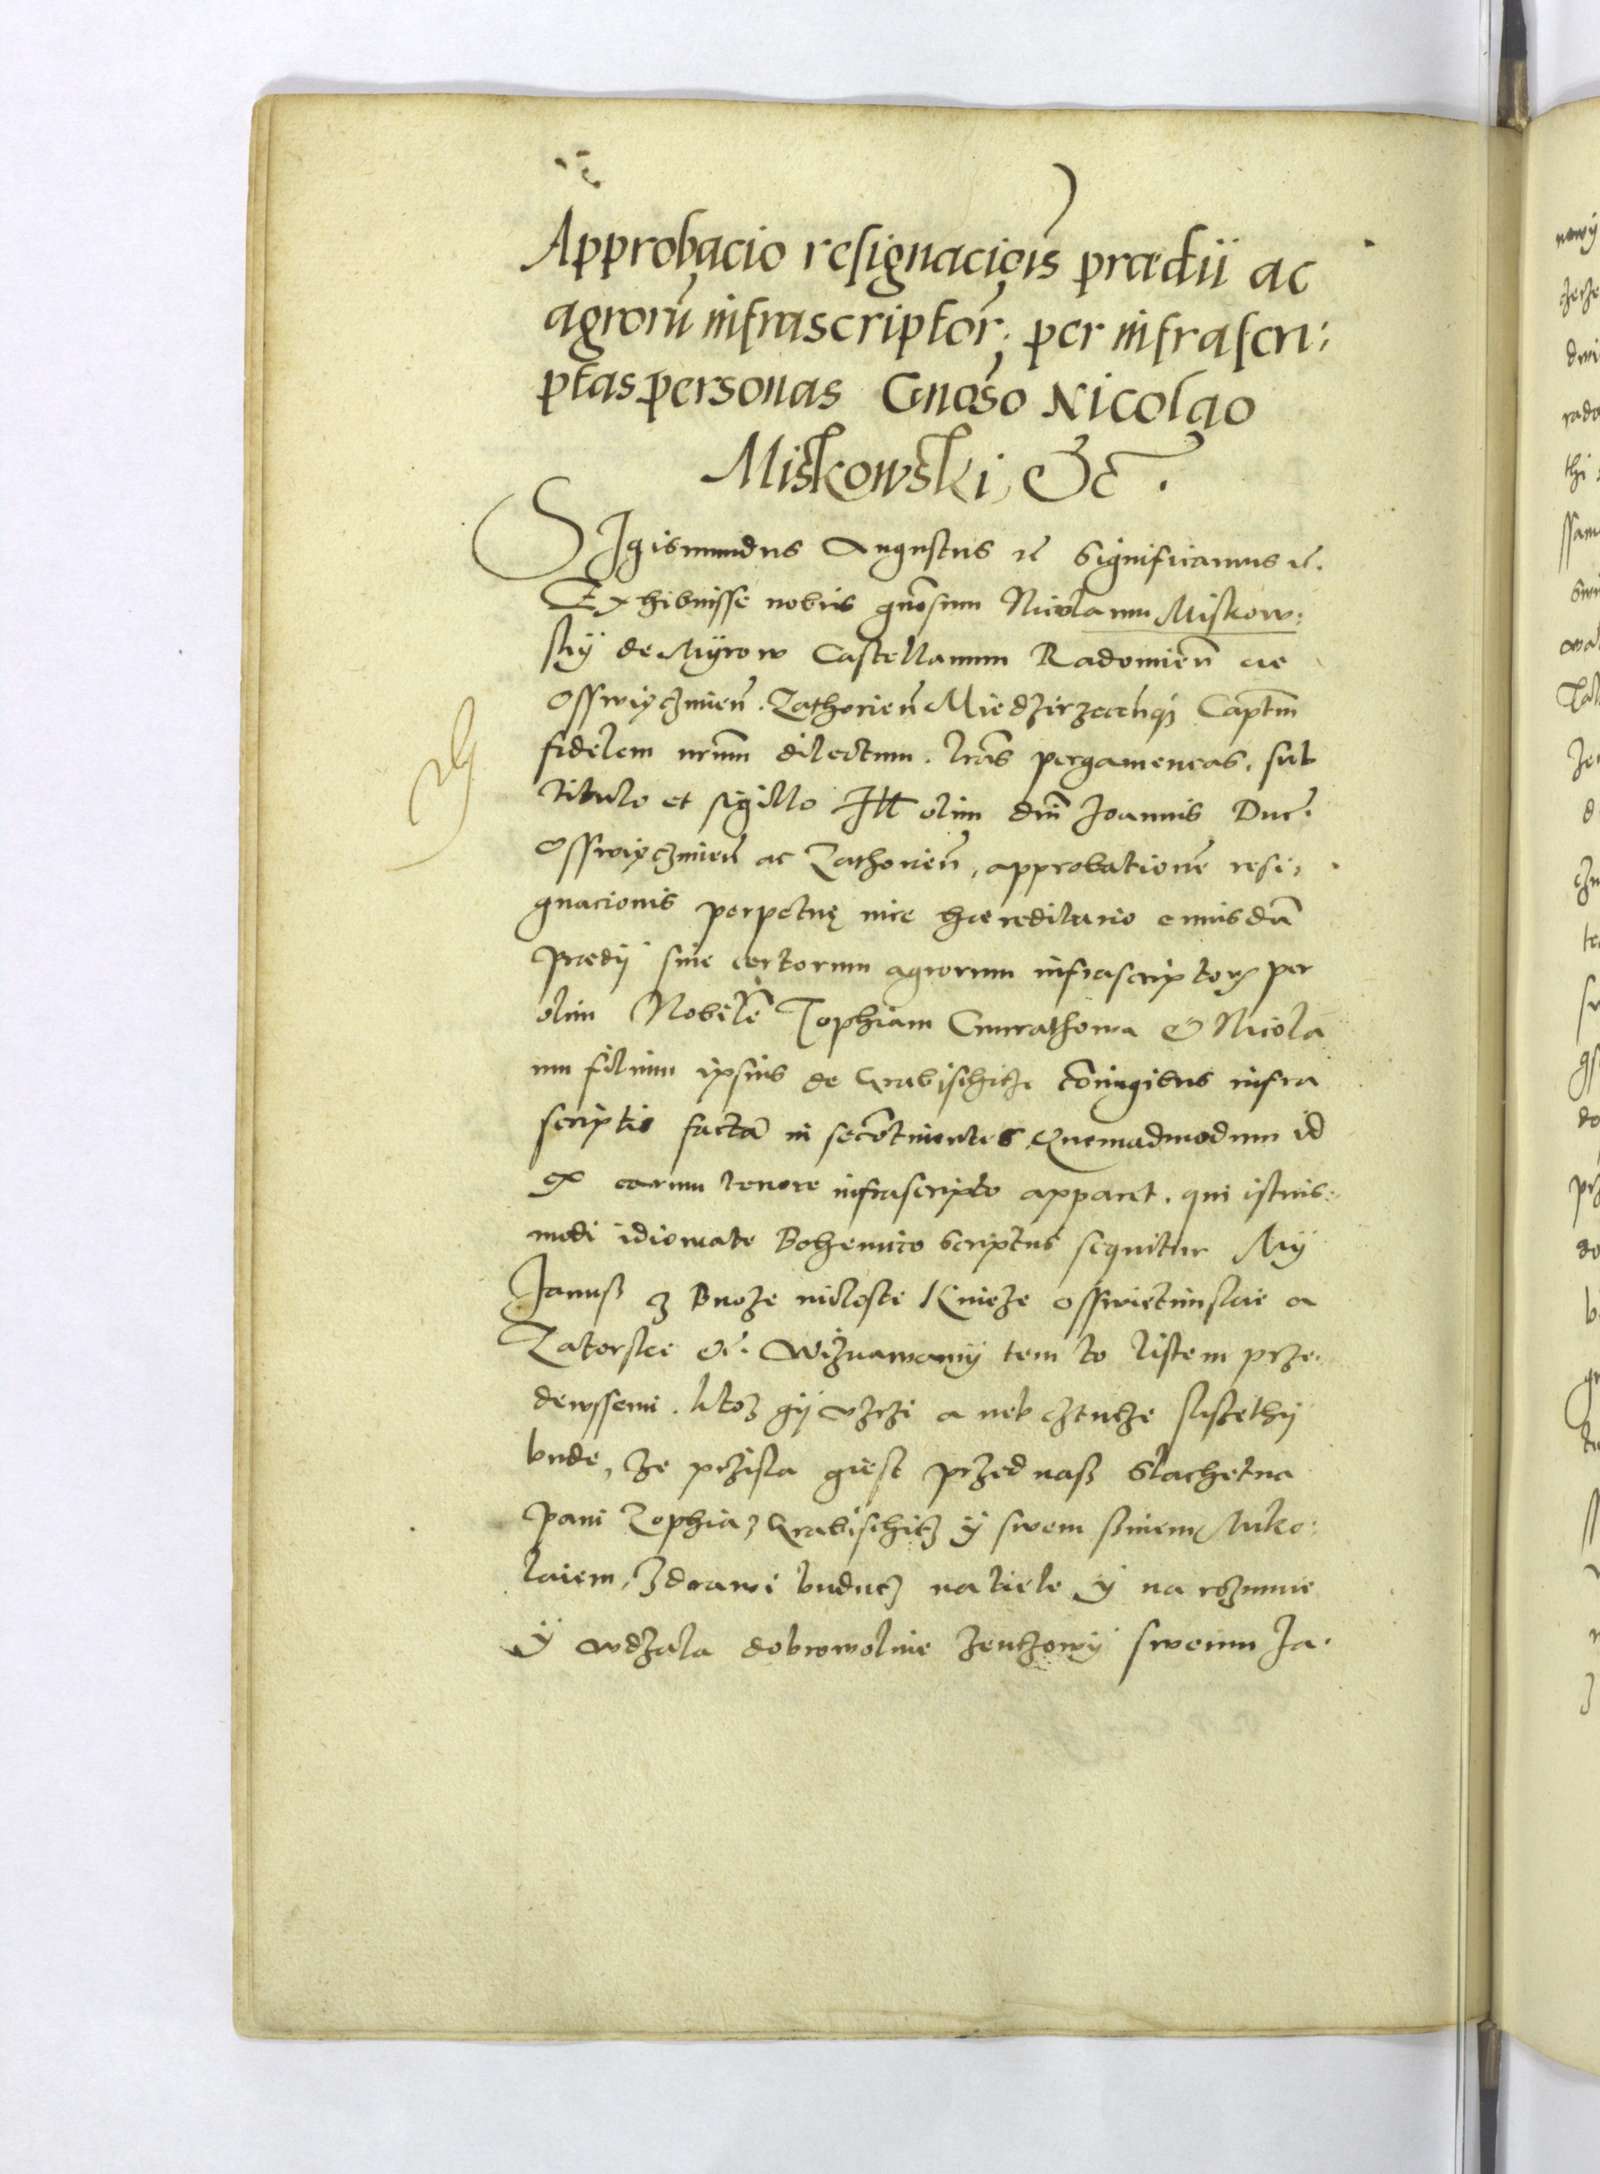 Approbacio resignaciois prædii ac
agrorū infrascriptor. per infrascri:
ptas personas Gnoso Nicolao
Miskowski, &c.
SIgismundus Augustus rc̄ Significamus rc̄.
Exhibuisse nobis gnosum Nicolaum Miskow:
skÿ de Myrow Castellanum Radomien̄ ac
Osswiyczmien̄. Zathorien̄ Miedzirzecen̄q; Captm̄
fidelem nrūm dilectum. lrās pergameneas, sub
titulo et sigillo Ill olim dnī Joannis Duc.
Osswiyczmien̄ ac Zathorien̄, approbationē resi:
gnacionis perpetuę nice hæreditario cuiusdā
prædÿ siue certorum agrorum infrascriptor per
olim Nobilē Zophiam Cunrathowa & Nicola
um filium ipsius de Grabischicz coniugibus infra
scriptis factā in se cōtinentes, Quemadmodum id
ex earum tenore infrascripto apparet. qui istius:
modi idiomate Bohemico scriptus sequitur MÿJanuß z Buoze miloste Knieze Osswietimskie a
Zatorskie &c. Wiznawamÿ tem to listem prze:
dewssemi. ktoz gÿ vzrzi a neb cztucze slissethÿ
bude, ze przisla giest przed naß Slachetna
pani Zophia z Grabischicz ÿ swem sÿnem Miko:
laiem, zdrawi buducz na tiele ÿ na rozumie
ÿ wdzala dobrowolnie zentzowÿ swemu Ja.